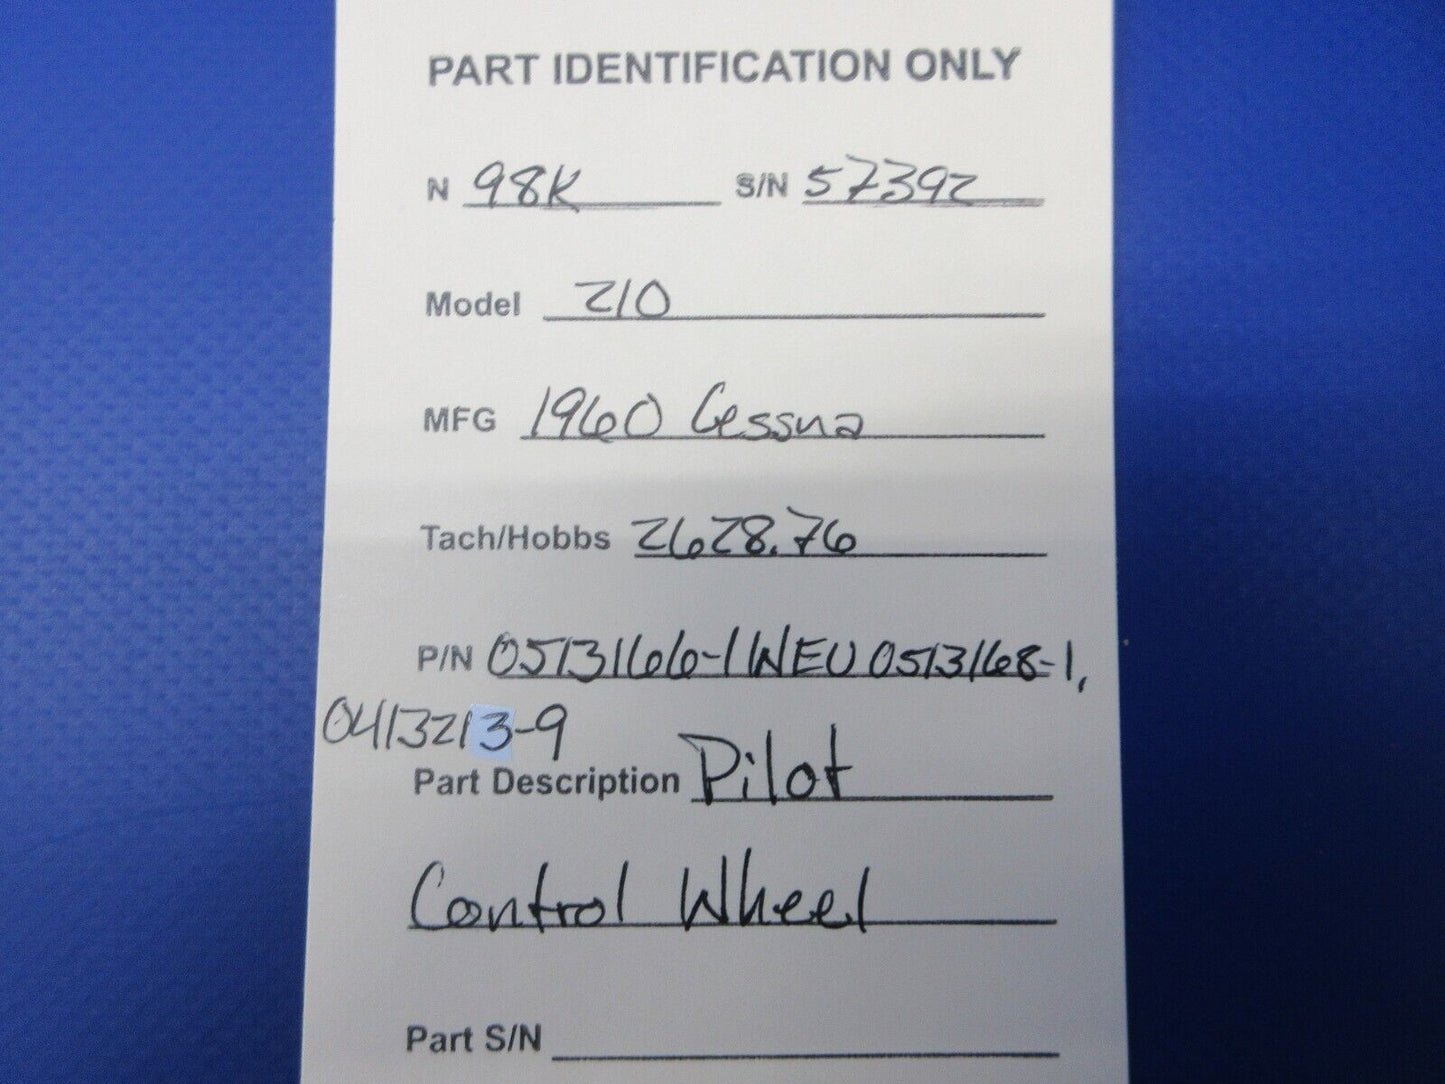 PART IDENTIFICATION ONLY
N 98K S/N 57392
Model 210
MFG 1960 Cessna
Tach/Hobbs 2628.76
P/N 0513166-1 WEU 0513168-1,
0413213-9
Part Description Pilot
Control Wheel
Part S/N